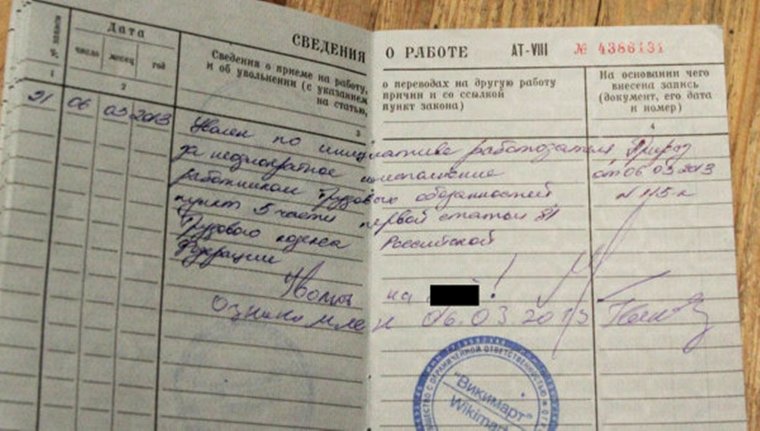 СВЕДЕНИЯ О РАБОТЕ АТ-VIII № 4386131
№ записи
Дата
число месяц год
Сведения о приеме на работу,
и об увольнении (с указанием
на статью,
о переводах на другую работу
причин и со ссылкой
пункт закона)
На основании чего
внесена запись
(документ, его дата
и номер)
1 2 3 4
21 06 03 2013
Уволен по инициативе работодателя
за неоднократное неисполнение
работником трудовых обязанностей
пункт 5 части первой статьи 81
Трудового кодекса Российской
Федерации
Приказ
от 06.03.2013
на !
ознакомлен 06.03.2013
ОБЩЕСТВО С ОГРАНИЧЕННОЙ ОТВЕТСТВЕННОСТЬЮ
"Викимарт"
Wikimart